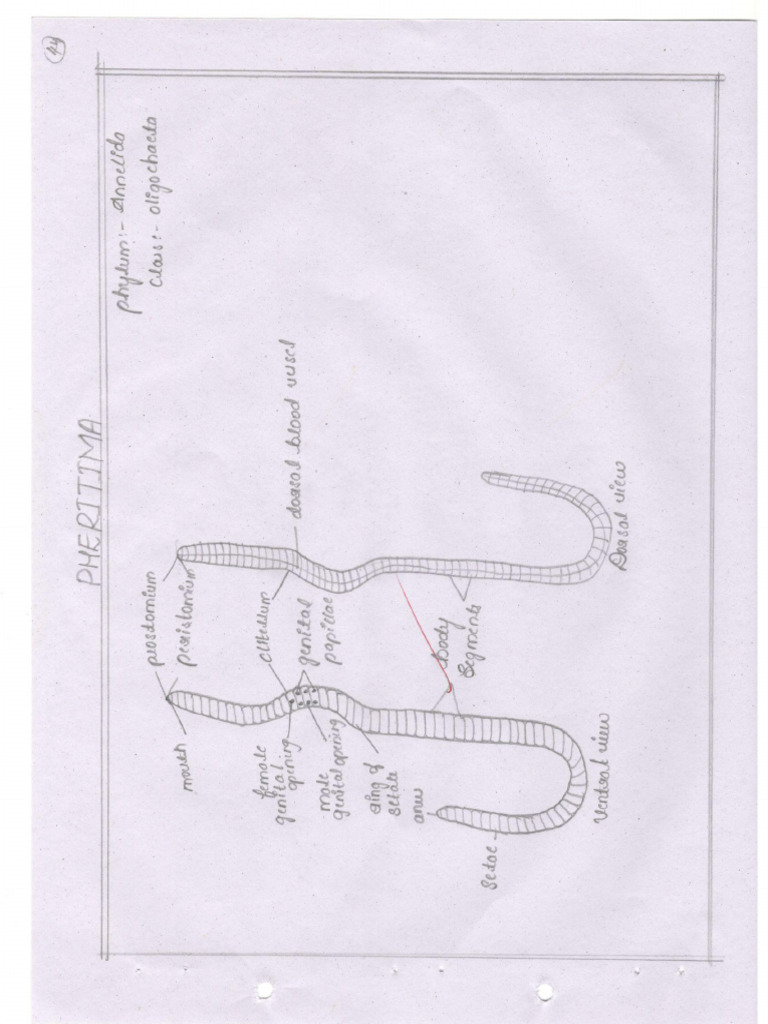 44
PHERITIMA
Phylum:- Annelida
Class:- Oligochaeta
prostomium
peristomium
mouth
clitellum
dorsal blood vessel
genital
papillae
female
genital
opening
male
genital opening
ring of
setae
anus
setae
body
segments
Ventral view
Dorsal view